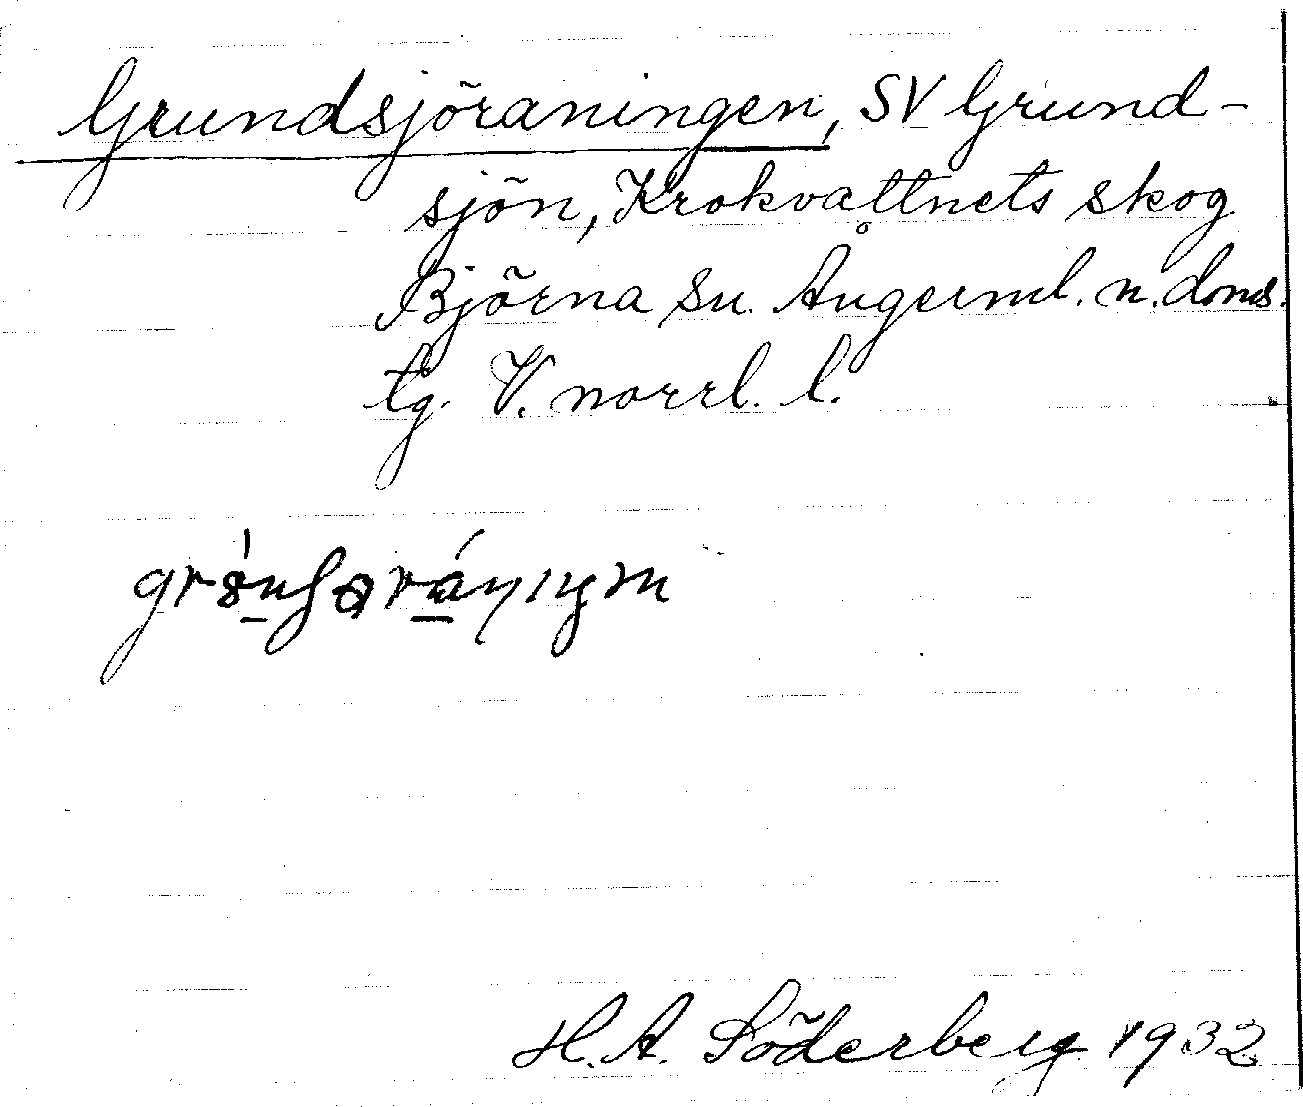 Grundsjöraningen, SV Grund-
sjön, Krokvattnets skog
Björna sn. Ångerml. n. doms.
tg. V. norrl. l.
H. A. Söderberg 1932